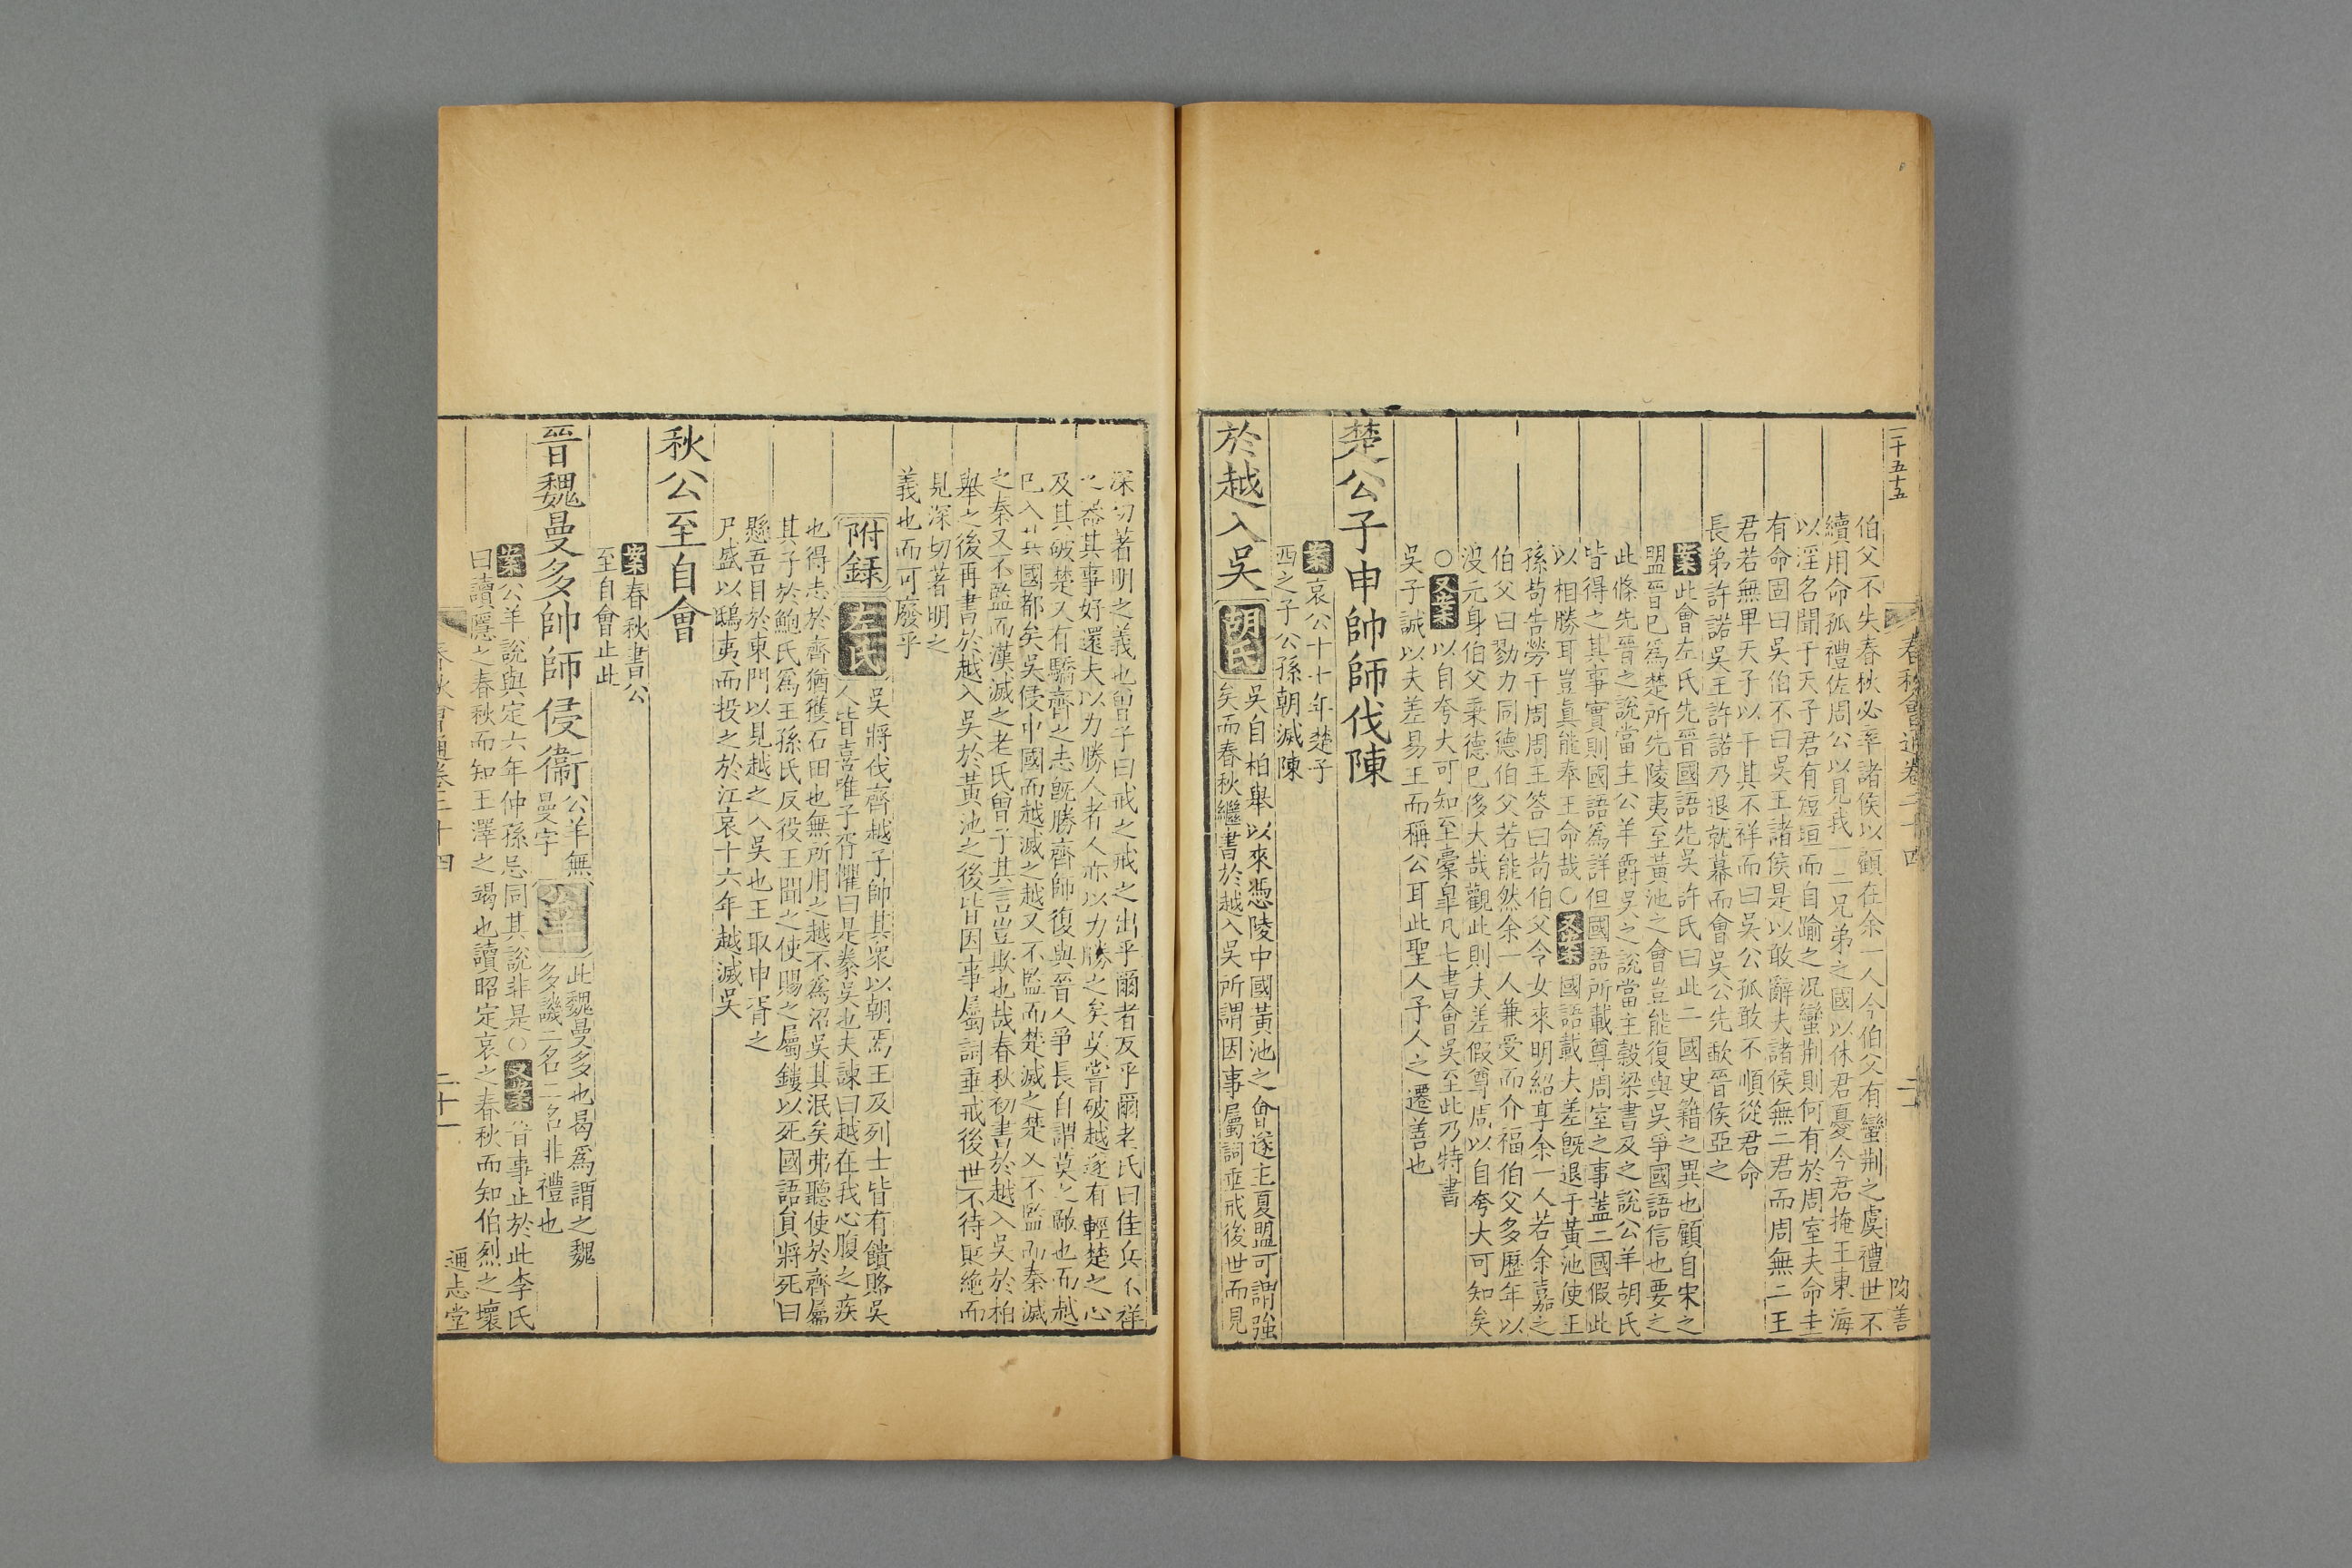 二十五十五
春秋會通卷二十四
伯父不失春秋必率諸侯以顧在余一人今伯父有蠻荆之虞禮世不
續用命孤禮佐周公以見我一二兄弟之國以休君憂今君掩王東海
以淫名聞于天子君有短垣而自踰之況蠻荆則何有於周室夫命圭
有命固曰吳伯不曰吳王諸侯是以敢辭夫諸侯無二君而周無二王
君若無卑天子以干其不祥而曰吳公孤敢不順從君命
長弟許諾吳王許諾乃退就幕而會吳公先歃晉侯亞之
案此會左氏先晉國語先吳許氏曰此二國史籍之異也顧自宋之
盟晉已爲楚所先陵夷至黃池之會豈能復與吳爭國語信也要之
此條先晉之說當主公羊爵吳之說當主穀梁書及之說公羊胡氏
皆得之其事實則國語爲詳但國語所載尊周室之事蓋二國假此
以相勝耳豈眞能奉王命哉○又案國語載夫差旣退于黃池使王
孫苟告勞于周周王答曰苟伯父令女來明紹享余一人若余嘉之
伯父曰勠力同德伯父若能然余一人兼受而介福伯父多歷年以
没元身伯父秉德已侈大哉觀此則夫差假尊周以自夸大可知矣
○又案以自夸大可知至槖臯凡七書會吳至此乃特書
吳子誠以夫差易王而稱公耳此聖人予人之遷善也
楚公子申帥師伐陳
案哀公十七年楚子
西之子公孫朝滅陳
於越入吳
胡氏吳自柏舉以來憑陵中國黃池之會遂主夏盟可謂強
矣而春秋繼書於越入吳所謂因事屬詞垂戒後世而見
深切著明之義也曽子曰戒之戒之出乎爾者反乎爾老氏曰佳兵不祥
之器其事好還夫以力勝人者人亦以力勝之矣吳嘗破越遂有輕楚之心
及其破楚又有驕齊之志旣勝齊師復與晉人爭長自謂莫之敵也而越
已入其國都矣吳侵中國而越滅之越又不監而楚滅之楚又不監而秦滅
之秦又不監而漢滅之老氏曽子其言豈欺也哉春秋初書於越入吳於柏
舉之後再書於越入吳於黃池之後皆因事屬詞垂戒後世不待貶絶而
見深切著明之
義也而可廢乎
附録左氏吳將伐齊越子帥其衆以朝焉王及列士皆有饋賂吳
人皆喜唯子胥懼曰是豢吳也夫諫曰越在我心腹之疾
也得志於齊猶獲石田也無所用之越不爲沼吳其泯矣弗聽使於齊屬
其子於鮑氏爲王孫氏反役王聞之使賜之屬鏤以死國語員將死曰
懸吾目於東門以見越之入吳也王取申胥之
尸盛以鴟夷而投之於江哀十六年越滅吳
秋公至自會
案春秋書公
至自會止此
晉魏曼多帥師侵衞
公羊無
曼字
公羊此魏曼多也曷爲謂之魏
多譏二名二名非禮也
案公羊說與定六年仲孫忌同其說非是○又案晉事止於此李氏
曰讀隱之春秋而知王澤之竭也讀昭定哀之春秋而知伯烈之壞
春秋會通卷二十四
二十一
通志堂